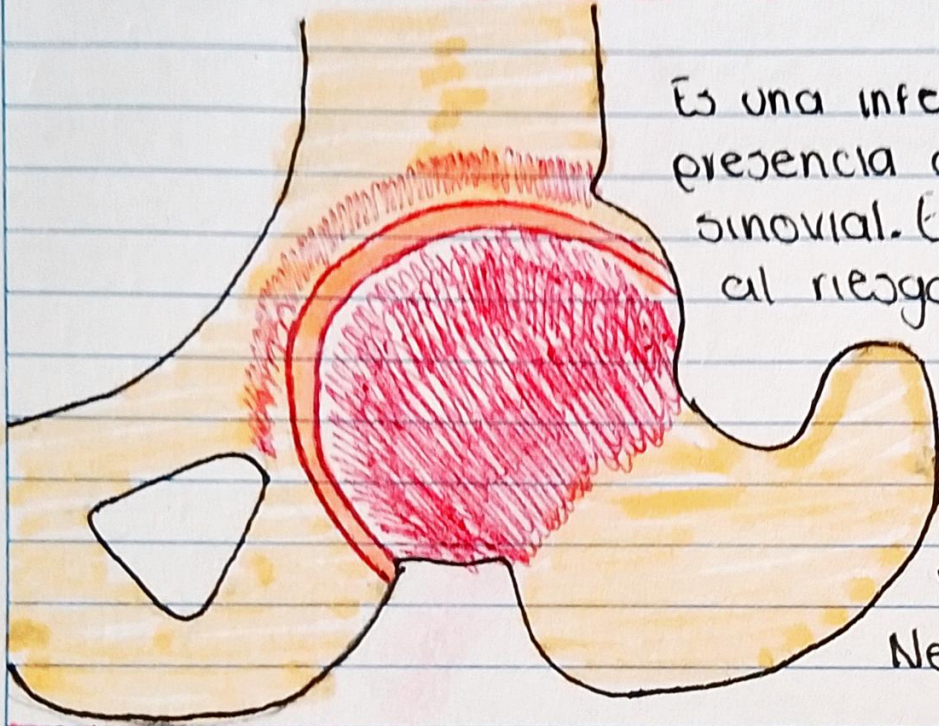 Es una infe
presencia
sinovial.
al riesgo
Ne